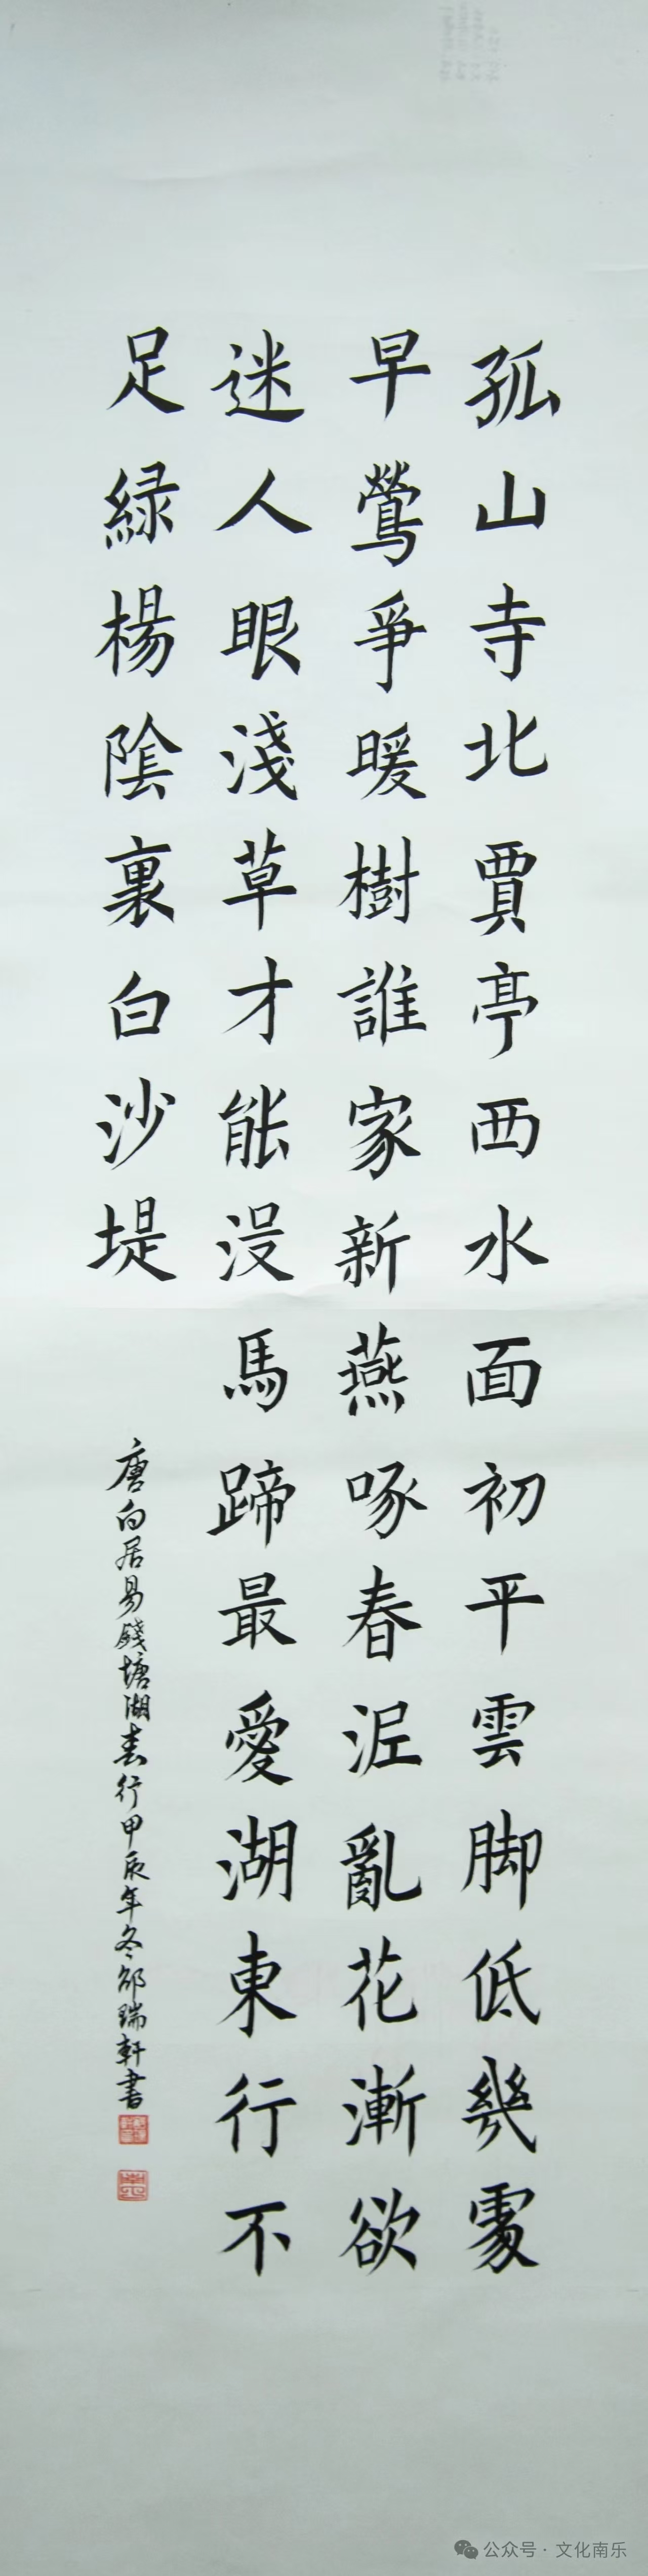 孤山寺北賈亭西水面初平雲脚低幾處
早鶯爭暖樹誰家新燕啄春泥亂花漸欲
迷人眼淺草才能沒馬蹄最愛湖東行不
足綠楊陰裏白沙堤
唐白居易錢塘湖春行甲辰年冬邵瑞軒書
公众号·文化南乐